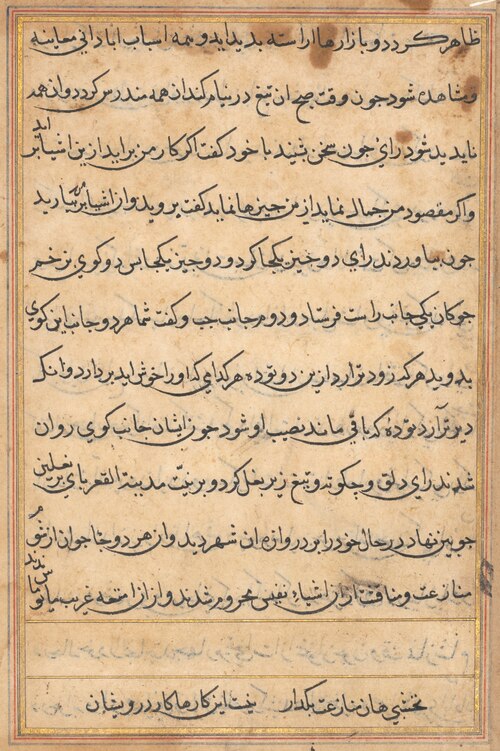 ظاهر کردد و بازارها اراسته بدید اید و همه اسباب ابادانی معاینه
و مشاهده شود جون وقت صبح ان تیغ در نیام کند ان همه مندرس کردد و ان همه
ناپدید شود رای جون سخن شنید با خود کفت اکر کار من براید ازین اشیا براید
و اکر مقصود من جمال نماید از من جیزها نماید کفت بروید و ان اشیا بیارید
جون بیاوردند رای دو جیز یکجا کرد و دو جیز یکجا بس دو کوی بزخم
جوکان یکی جانب راست فرستاد و دوم جانب جب و کفت شما هر دو جانب این کوی
بدوید هر که زود تر ارد ازین دو توده هر کدامی که او را خوش اید بردارد و انکه
دیر تر آرد توده که باقی ماند نصیب او شود جون ایشان جانب کوی روان
شدند رای دلق و جکوته و تیغ زیر بغل کرد و بر نیت مدینة القعر بای بر نعلین
جوبین نهاد در حال خود را بر دروازه ان شهر دید و ان هر دو جوان از شو
منازعت و مناقشت ازان اشیاء نفیس محروم شدند و ازان امتعه غریب مایوس ماندند
نخشبی هان منازعت بکذار نیست این کارها کار درویشان